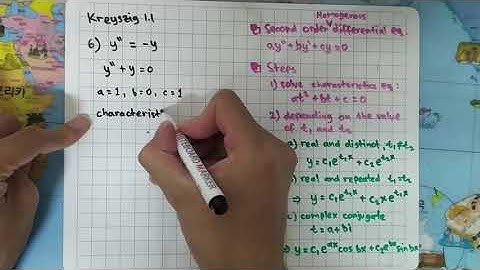 Kreyszig 1.1
6) y" = -y
y" + y = 0
a = 1, b = 0, c = 1
characterist
Homogenous
Second order differential eq.
ay" + by' + cy = 0
Steps
1) solve characteristics eq:
at² + bt + c = 0
2) depending on the value
of t₁ and t₂
a) real and distinct, t₁ ≠ t₂
y = c₁e^t₁x + c₂e^t₂x
real and repeated t₁ = t₂
⇒ y = c₁e^t₁x + c₂xe^t₁x
c) complex conjugate
t = a + bi
⇒ y = c₁e^ax cos bx + c₂e^ax sin bx